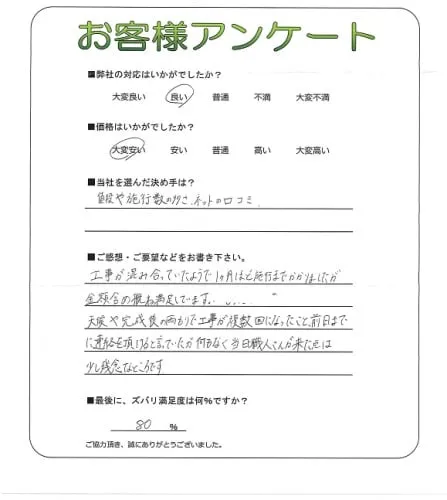 お客様アンケート
■弊社の対応はいかがでしたか?
大変良い 良い 普通 不満 大変不満
■価格はいかがでしたか?
大変安い 安い 普通 高い 大変高い
■当社を選んだ決め手は?
値段や施行数の多さ、ネットの口コミ
■ご感想・ご要望などをお書き下さい。
工事が混み合っていたようで1ヶ月ほど施行までかかりましたが
金額含め概ね満足しています。
天候や完成後の雨もりで工事が複数回になったこと、前日まで
に連絡を頂けると言っていたが何もなく当日職人さんが来た点は
少し残念なところです
■最後に、ズバリ満足度は何%ですか?
80 %
ご協力頂き、誠にありがとうございました。